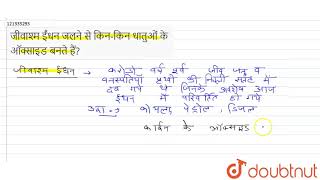 121555293
जीवाश्म ईंधन जलने से किन-किन धातुओं के
ऑक्साइड बनते हैं?
जीवाश्म ईंधन → करोड़ो वर्ष पूर्व जीव जन्तु व
वनस्पतियां पृथ्वी की निचली सतह में
दब गये थे जिनके अवशेष आज
ईंधन में परिवर्तित हो गये
उदा० → कोयला, पेट्रोल, डिजल
कार्बन के ऑक्साइड
doubtnut